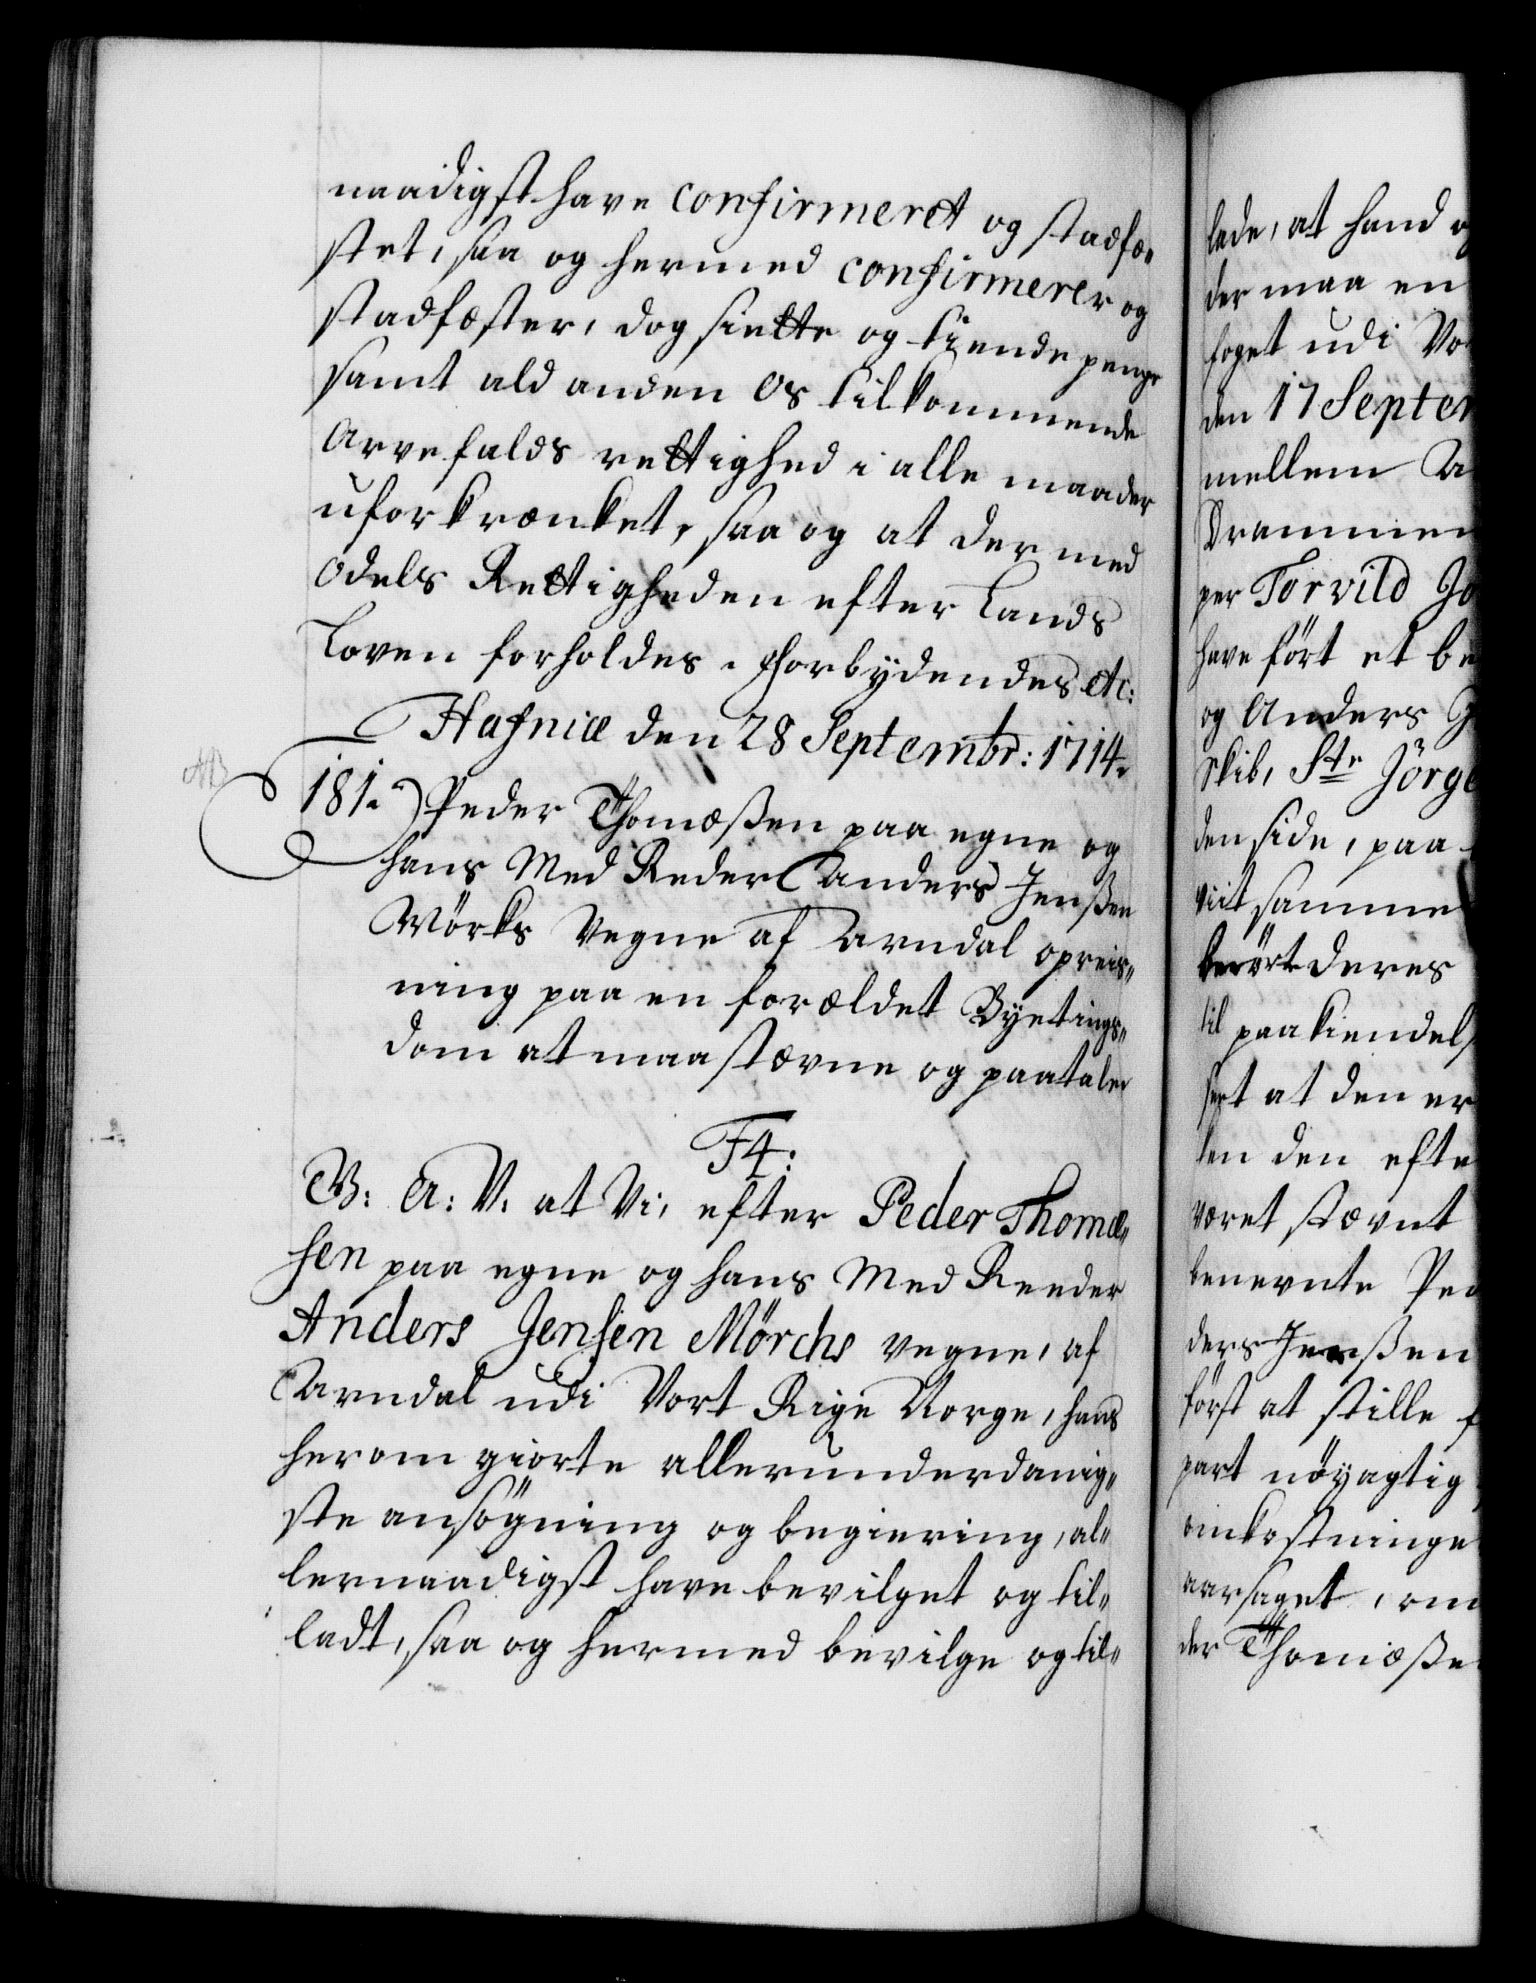 naadigst have confirmeret og stadfæ„
stet, saa og hermed confirmerer og
stadfæster, dog siette og tiende penge
samt ald anden Os tilkommende
Arvefalds rettighed i alle maader
uforkrænket, saa og at der med
Odels Rettigheden efter Lands
Loven forholdes. Forbydendes etc:
Hafniæ den 28 Septembr: 1714.
181.) Peder Thomæßen paa egne og
hans Med Reder Anders Jenßen
Mörks Vegne af Arndal opreis„
ning paa en forældet Byetings„
dom at maa stævne og paatale
F4:
G: A: V. at Vi, efter Peder Thomæ„
sen paa egne og hans Med Reeder
Anders Jensen Mörchs vegne, af
Arndal udi Vort Rige Norge, hans
herom giorte allerunderdanig„
ste ansögning og begiering, al„
lernaadigst have bevilget og til„
ladt, saa og hermed bevilge og til„
lade, at hand o
der maa en
foget udi Vo
den 17 Septem
mellem A
Drammen
per Torvild Jo
have fört et be
og Anders J
Skib, Ste Jörge
den side, paa
viit samme
berört deres
til paakiendel
sert at den er
len den efte
været stævnt
benevnte Ped
ders Jenßen
först at stille f
part nöyagtig
omkostninge
aarsaget, om
der Thomæße